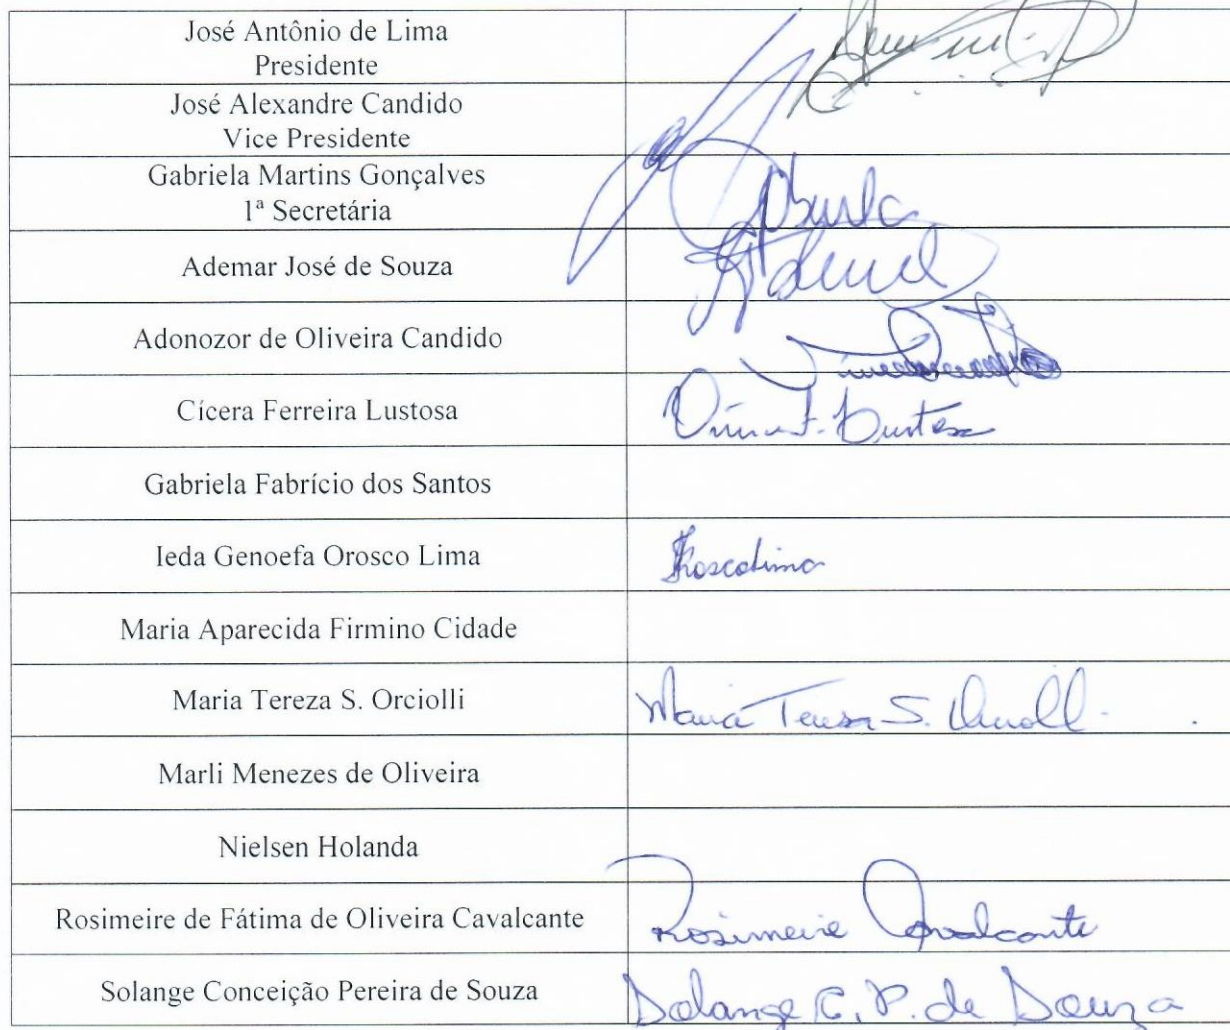 José Antônio de Lima
Presidente
José Alexandre Candido
Vice Presidente
Gabriela Martins Gonçalves
1ª Secretária
Ademar José de Souza
Adonozor de Oliveira Candido
Cícera Ferreira Lustosa
Gabriela Fabrício dos Santos
Ieda Genoefa Orosco Lima
Maria Aparecida Firmino Cidade
Maria Tereza S. Orciolli
Maria Teresa S.
Marli Menezes de Oliveira
Nielsen Holanda
Rosimeire de Fátima de Oliveira Cavalcante
Rosimeire Cavalcante
Solange Conceição Pereira de Souza
Solange C. P. de Souza